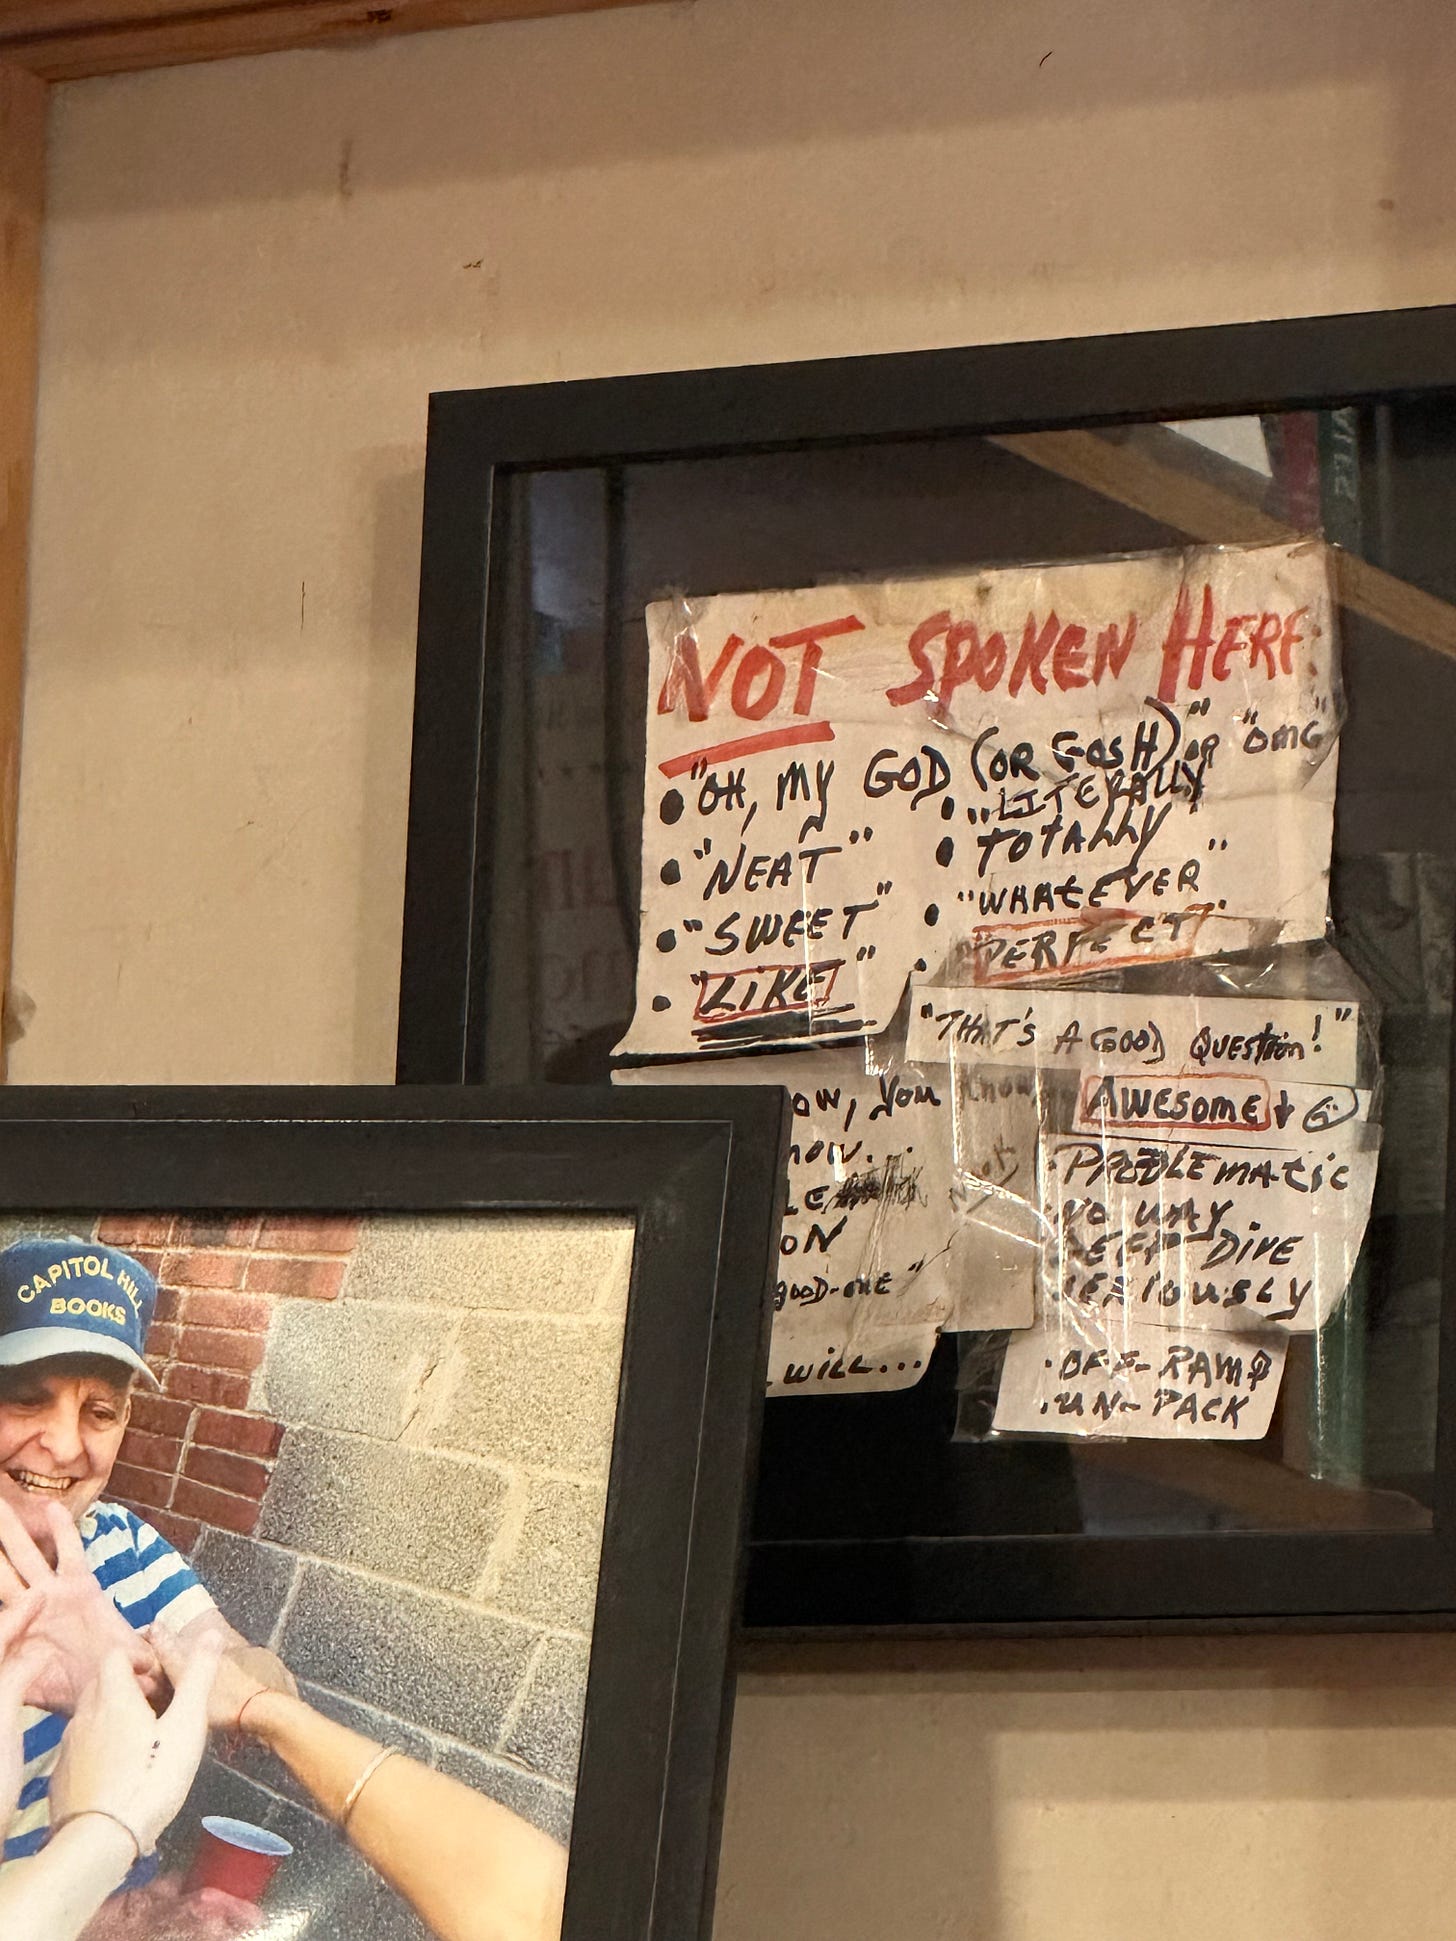 NOT SPOKEN HERE:
• "OH, MY GOD (OR GOSH)" OR "OMG"
• "NEAT"
• "SWEET"
• "LIKE"
• "LITERALLY
• TOTALLY
• "WHATEVER"
• "PERFECT"
"THAT'S A GOOD QUESTION!"
AWESOME
OW, YOU KNOW,
NOW...
LE
ON
GOOD-ONE"
WILL...
• PROBLEMATIC
• NO WAY
DEEP DIVE
SERIOUSLY
• OFF-RAMP
• UN-PACK
CAPITOL HILL
BOOKS